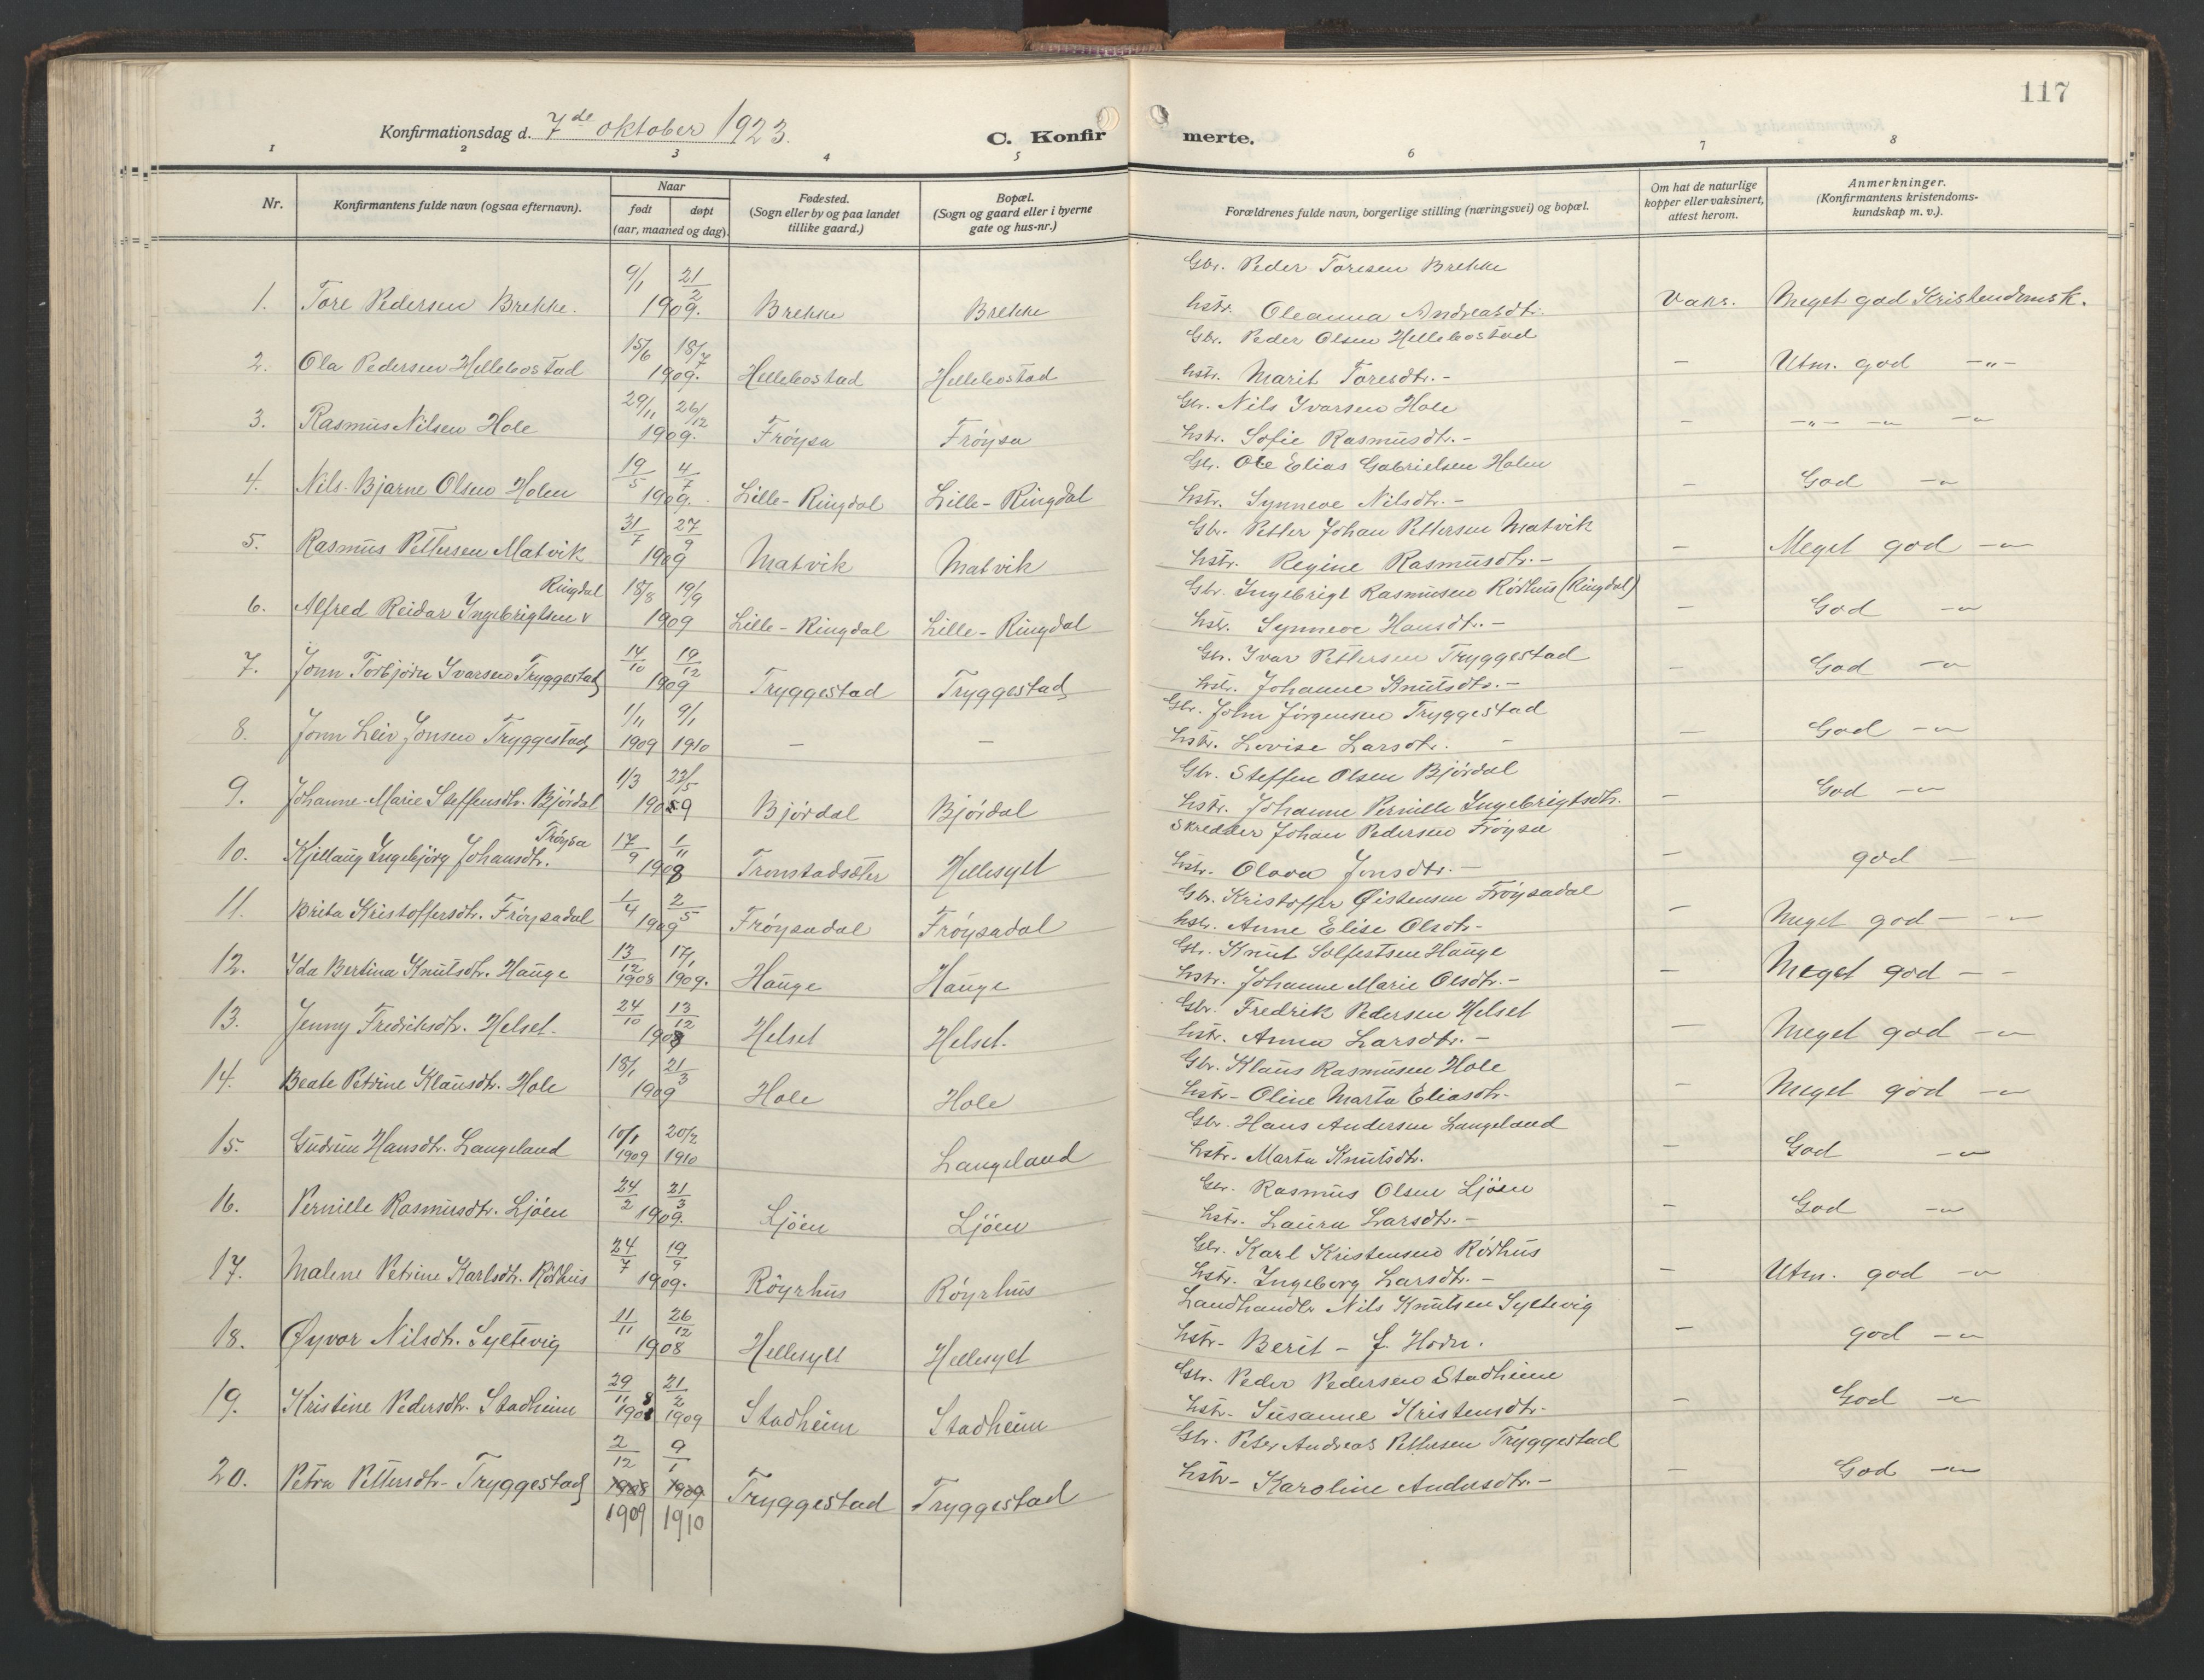 117
Konfirmationsdag d. 7de oktober 1923.
C. Konfirmerte.
1 2 3 4 5 6 7 8
Nr.
Konfirmantens fulde navn (ogsaa efternavn).
Naar
født døpt
(aar, maaned og dag).
Fødested.
(Sogn eller by og paa landet
tillike gaard.)
Bopæl.
(Sogn og gaard eller i byerne
gate og hus-nr.)
Forældrenes fulde navn, borgerlige stilling (næringsvei) og bopæl.
Om hat de naturlige
kopper eller vaksinert,
attest herom.
Anmerkninger.
(Konfirmantens kristendoms-
kundskap m. v.).
Gbr. Peder Toresen Brekke
1. Tore Pedersen Brekke. 9/1 21/2 1909. Brekke Brekke hstr. Oleanna Andreasdtr. Vaks. Meget god Kristendomsk.
Gbr. Peder Olsen Hellebostad
2. Ola Pedersen Hellebostad 15/6 18/7 1909. Hellebostad Hellebostad hstr. Marit Toresdtr. - — Utm. god —"—
Gbr. Nils Ivarsen Hole
3. Rasmus Nilsen Hole 29/11 26/12 1909. Frøysa Frøysa hstr. Sofie Rasmusdtr. - — —"— —"— —"
Gbr. Ole Elias Gabrielsen Holen
4. Nils-Bjarne Olsen Holen 19/5 4/7 1909. Lille-Ringdal Lille-Ringdal hstr. Synneve Nilsdtr. - — God —"
Gbr. Petter Johan Pettersen Matvik
5. Rasmus Pettersen Matvik 31/7 27/9 1909 Matvik Matvik hstr. Regine Rasmusdtr. - — Meget god —"—
Ringdal
Gbr. Ingebrigt Rasmusen Rødhus (Ringdal)
6. Alfred Reidar Ingebrigtsen v 18/8 19/9 1909 Lille-Ringdal Lille-Ringdal hstr. Synneve Hansdtr. - — God —"
Gbr. Ivar Pettersen Tryggestad
7. Jonn Torbjørn Ivarsen Tryggestad 14/10 19/12 1909 Tryggestad Tryggestad hstr. Johanne Knutsdtr. - — God —"
Gbr. John Jørgensen Tryggestad
8. Jonn Leiv Jonsen Tryggestad 1/11 1909 9/1 1910 — — hstr. Lovise Larsdtr. - — God —"
Gbr. Steffen Olsen Bjørdal
9. Johanne-Marie Steffensdtr. Bjørdal 1/3 23/5 1909 Bjørdal Bjørdal hstr. Johanne Pernille Ingebrigtsdtr. — God —"
Frøysa
Skredder Johan Pedersen Frøysa
10. Kjellaug Ingebjørg Johansdtr. 17/9 1/11 1908 Tronstadsæter Hellesylt hstr. Olava Jonsdtr. - — god —
Gbr. Kristoffer Øistensen Frøysadal
11. Brita Kristoffersdtr. Frøysadal 1/4 2/5 1909 Frøysadal Frøysadal hstr. Anne Elise Olsdtr. - — Meget god — —"
Gbr. Knut Solfestsen Hauge
12. Ida Bertina Knutsdtr. Hauge 13/12 1908 17/1 1909. Hauge Hauge hstr. Johanne Marie Olsdtr. - — Meget god — —
Gbr. Fredrik Pedersen Helset
13. Jenny Fredriksdtr. Helset. 24/10 13/12 1908 Helset Helset. hstr. Anna Larsdtr. - — Meget god —"
Gbr. Klaus Rasmusen Hole
14. Beate Petrine Klausdtr. Hole 18/1 21/3 1909 Hole Hole hstr- Oline Marta Eliasdtr. — Meget god —"
Gbr. Hans Andersen Langeland
15. Gudrun Hansdtr. Langeland 10/1 1909 20/2 1910 Langeland hstr- Marta Knutsdtr. — God —"
Gbr. Rasmus Olsen Ljøen
16. Pernille Rasmusdtr. Ljøen 24/2 21/3 1909. Ljøen Ljøen hstr. Laura Larsdtr. - — God —"
Gbr. Karl Kristensen Rødhus
17. Malene Petrine Karlsdtr. Rødhus 24/7 19/9 1909. Røyrhus Røyrhus hstr. Ingeborg Larsdtr. - — Utm. god —"
Landhandler Nils Knutsen Syltevig
18. Øyvor Nilsdtr. Syltevig 11/11 26/12 1908 Hellesylt Hellesylt hstr- Berit - f. Hodn. — god —"
Gbr. Peder Pedersen Stadheim
19. Kristine Pedersdtr. Stadheim 29/11 1908 21/2 1909 Stadheim Stadheim hstr- Susanne Kristensdtr- — God —"
Gbr. Peter Andreas Pettersen Tryggestad
20. Petra Pettersdtr- Tryggestad 2/12 1908 9/1 1909 Tryggestad Tryggestad hstr- Karoline Andersdtr. - — God —"
1909 1910